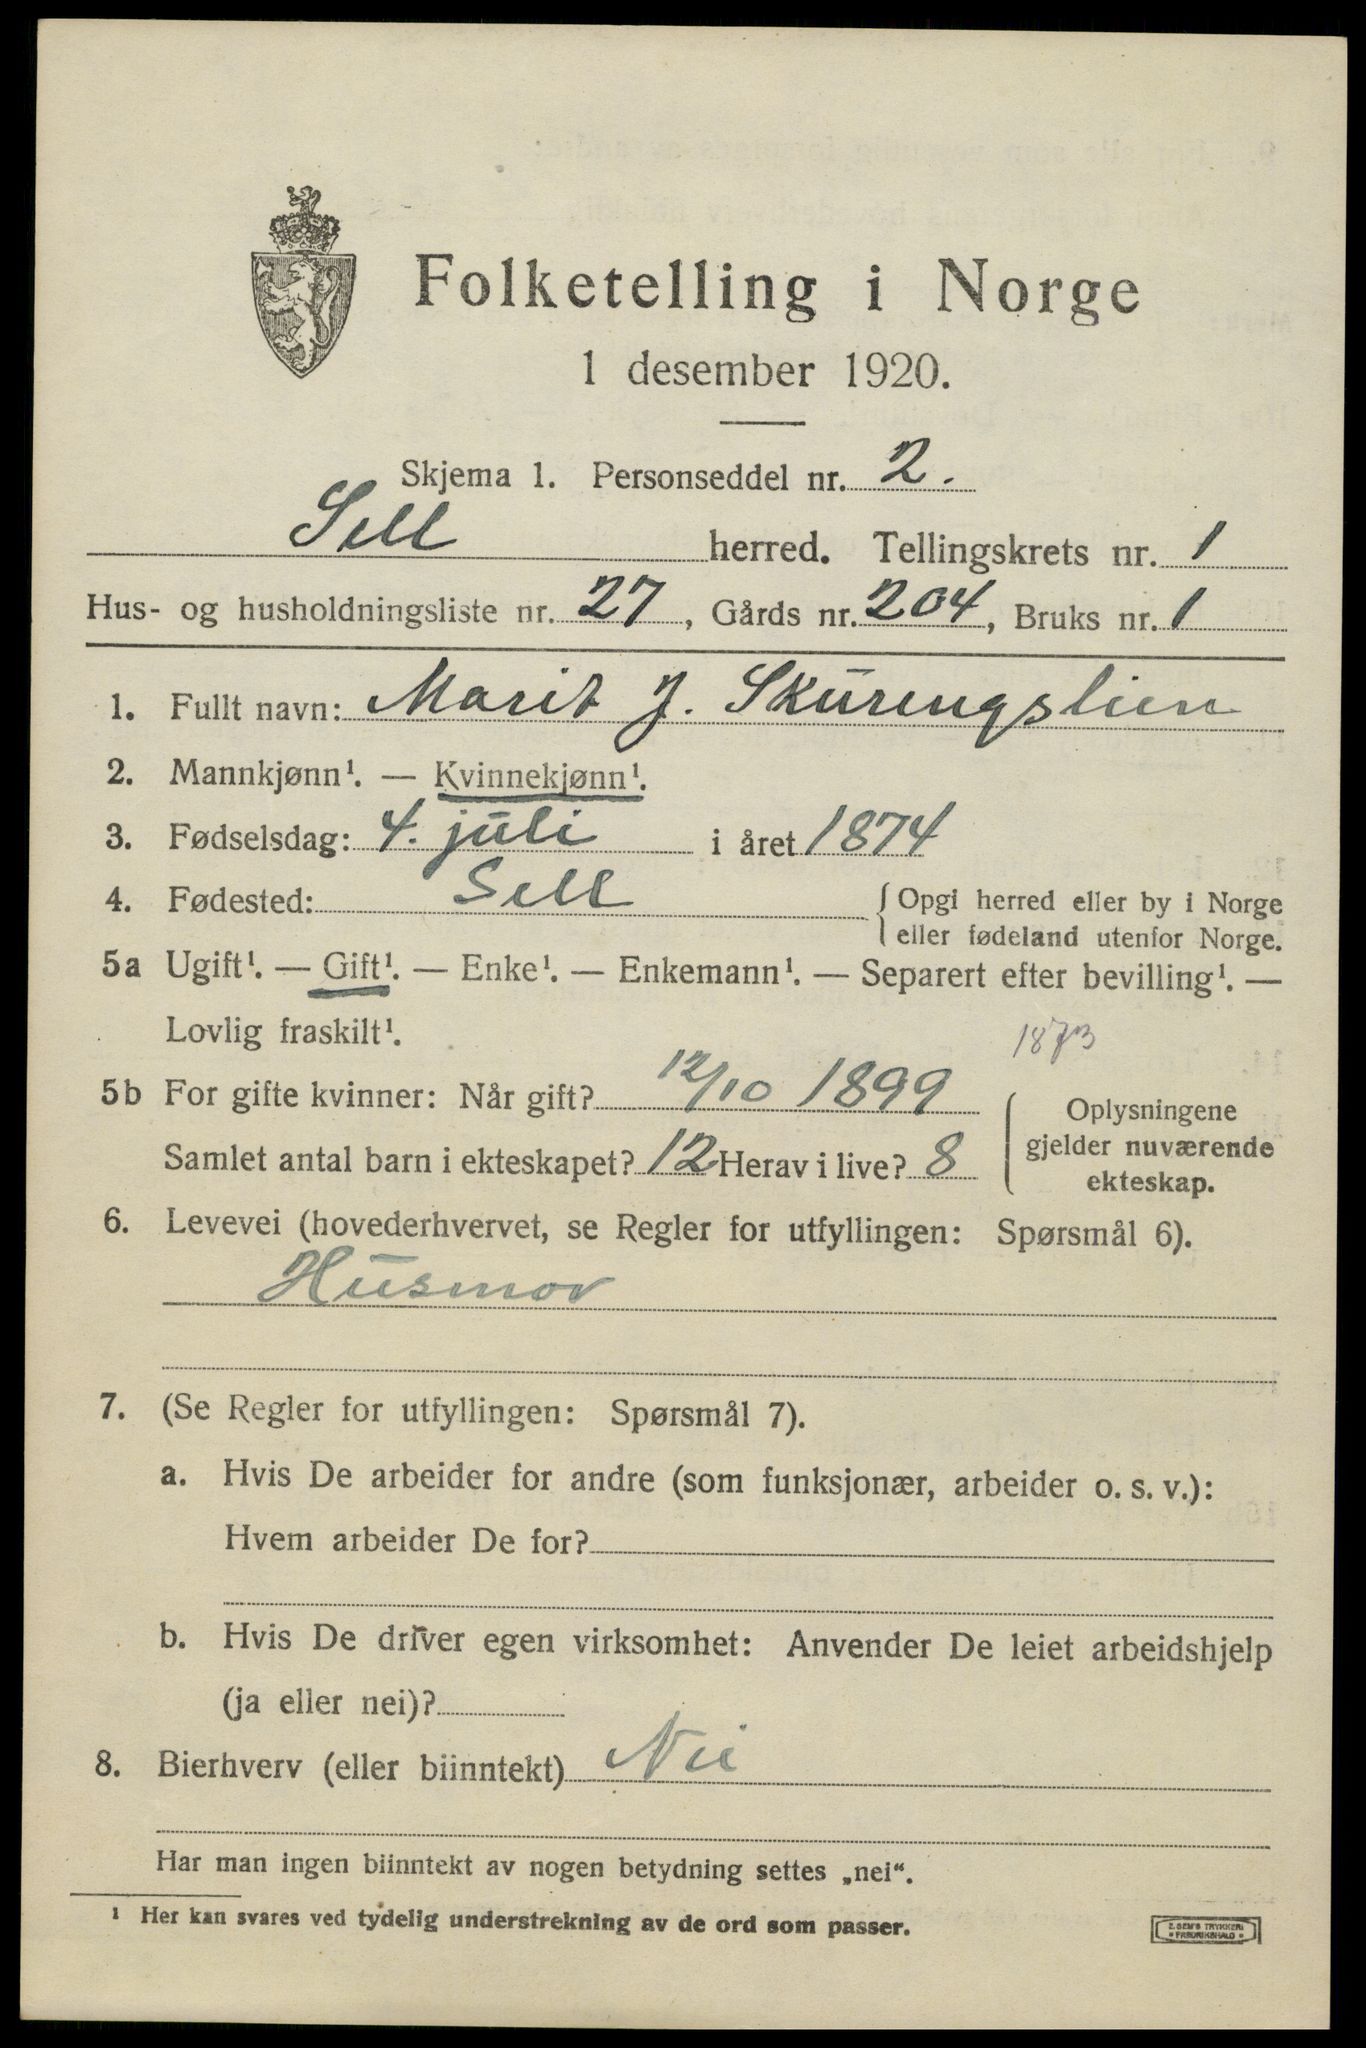 Folketelling i Norge
1 desember 1920.
Skjema 1. Personseddel nr. 2.
Sell herred. Tellingskrets nr. 1
Hus- og husholdningsliste nr. 27, Gårds nr. 204, Bruks nr. 1
1. Fullt navn: Marit J. Skurengslien
2. Mannkjønn¹. — Kvinnekjønn¹.
3. Fødselsdag: 4. juli i året 1874
4. Fødested: Sell { Opgi herred eller by i Norge
eller fødeland utenfor Norge.
5a Ugift¹. — Gift¹. — Enke¹. — Enkemann¹. — Separert efter bevilling¹. —
Lovlig fraskilt¹.
1873
5b For gifte kvinner: Når gift? 12/10 1899
Samlet antal barn i ekteskapet? 12 Herav i live? 8
Oplysningene
gjelder nuværende
ekteskap.
6. Levevei (hovederhvervet, se Regler for utfyllingen: Spørsmål 6).
Husmor
7. (Se Regler for utfyllingen: Spørsmål 7).
a. Hvis De arbeider for andre (som funksjonær, arbeider o. s. v.):
Hvem arbeider De for?
b. Hvis De driver egen virksomhet: Anvender De leiet arbeidshjelp
(ja eller nei)?
8. Bierhverv (eller biinntekt) Nei
Har man ingen biinntekt av nogen betydning settes „nei“.
¹ Her kan svares ved tydelig understrekning av de ord som passer.
E. SEM'S TRYKKERI
* FREDRIKSHALD *